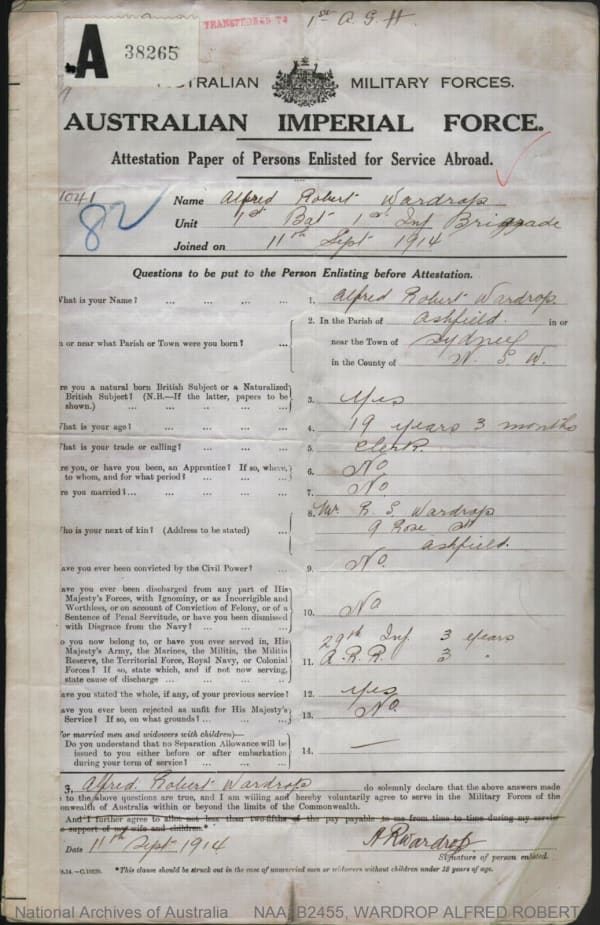 TRANSFERRED TO
1st A. G. H.
A 38265
AUSTRALIAN MILITARY FORCES.
AUSTRALIAN IMPERIAL FORCE.
Attestation Paper of Persons Enlisted for Service Abroad.
1041
82
Name Alfred Robert Wardrop
Unit 1st Bat 1st Inf Brigade
Joined on 11th Sept 1914
Questions to be put to the Person Enlisting before Attestation.
What is your Name? ... ... ... ... 1. Alfred Robert Wardrop
2. In the Parish of Ashfield. in or
n or near what Parish or Town were you born? ... near the Town of Sydney
in the County of N. S. W.
re you a natural born British Subject or a Naturalized
British Subject? (N.B.—If the latter, papers to be
shown.) ... ... ... ... 3. Yes
What is your age? ... ... ... ... 4. 19 years 3 months
What is your trade or calling? ... ... ... 5. Clerk.
re you, or have you been, an Apprentice? If so, where,
to whom, and for what period? ... ... ... 6. No
re you married? ... ... ... ... 7. No
8. Mr. R. S. Wardrop
Who is your next of kin? (Address to be stated) ... 9 Rose St
Ashfield.
ave you ever been convicted by the Civil Power? ... 9. No.
ave you ever been discharged from any part of His
Majesty's Forces, with Ignominy, or as Incorrigible and
Worthless, or on account of Conviction of Felony, or of a
Sentence of Penal Servitude, or have you been dismissed
with Disgrace from the Navy? ... ... ... 10. No
o you now belong to, or have you ever served in, His
Majesty's Army, the Marines, the Militia, the Militia
Reserve, the Territorial Force, Royal Navy, or Colonial
Forces? If so, state which, and if not now serving,
state cause of discharge ... ... ... ...
29th Inf. 3 years
11. A. R. R. 3 "
ave you stated the whole, if any, of your previous service? 12. Yes
ave you ever been rejected as unfit for His Majesty's
Service? If so, on what grounds? ... ... ... 13. No.
For married men and widowers with children)—
Do you understand that no Separation Allowance will be
issued to you either before or after embarkation
during your term of service? ... ... ... 14. —
3, Alfred Robert Wardrop do solemnly declare that the above answers made
to the above questions are true, and I am willing and hereby voluntarily agree to serve in the Military Forces of the
onwealth of Australia within or beyond the limits of the Commonwealth.
And I further agree to allot not less than two-fifths of the pay payable to me from time to time during my service
e support of my wife and children.*
Date 11th Sept 1914 A R Wardrop
Signature of person enlisted.
8.14.—C.10920. *This clause should be struck out in the case of unmarried men or widowers without children under 18 years of age.
National Archives of Australia NAA: B2455, WARDROP ALFRED ROBERT